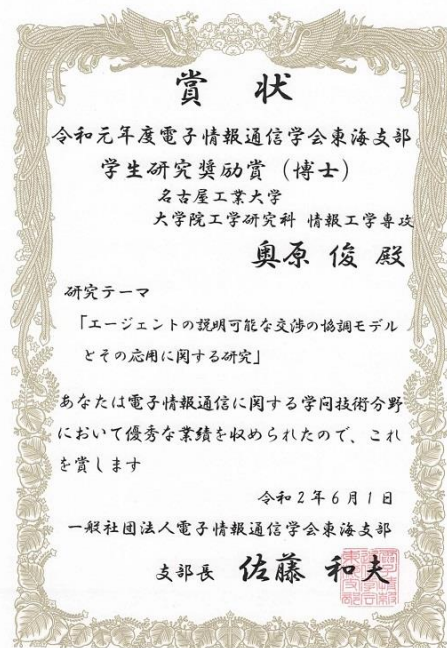 賞状
令和元年度電子情報通信学会東海支部
学生研究奨励賞（博士）
名古屋工業大学
大学院工学研究科 情報工学専攻
奥原 俊 殿
研究テーマ
「エージェントの説明可能な交渉の協調モデル
とその応用に関する研究」
あなたは電子情報通信に関する学問技術分野
において優秀な業績を収められたので、これ
を賞します
令和2年6月1日
一般社団法人電子情報通信学会東海支部
支部長 佐藤 和夫